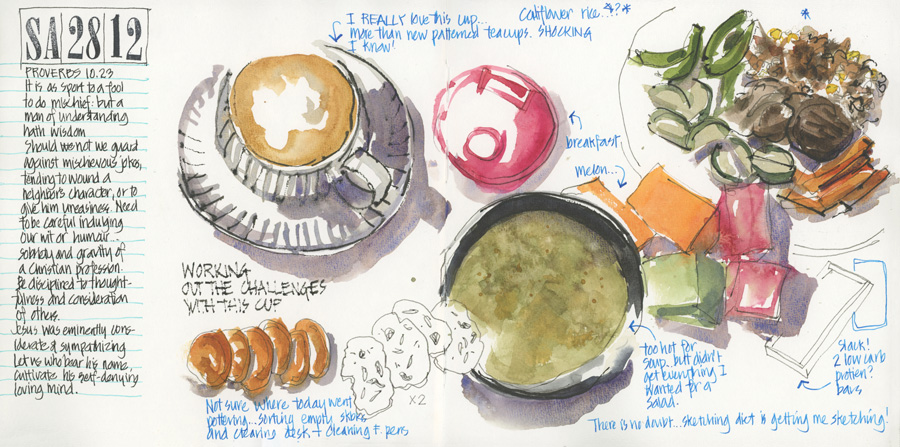 SA 28 12
PROVERBS 10.23
It is as sport to a fool
to do mischief: but a
man of understanding
hath wisdom
Should we not we guard
against mischievous jokes,
tending to wound a
neighbor's character, or to
give him uneasiness. Need
to be careful indulging
our wit or humour...
sobriety and gravity of
a Christian profession.
Be disciplined to thought-
fulness and consideration
of others.
Jesus was eminently cons-
iderate & sympathizing
Let us who bear his name,
cultivate his self-denying
loving mind.
I REALLY love this cup...
more than new patterned teacups. SHOCKING
I know!
Cauliflower rice...*?*
*
breakfast
melon...
WORKING
OUT THE CHALLENGES
WITH THIS CUP
x2
Not sure where today went
pottering... sorting empty skbks
and cleaning desk + cleaning f. pens
too hot for
soup. but didn't
get everything I
wanted for a
salad.
Snack!
2 low carb
protien?
bars
There is no doubt... sketching diet is getting me sketching!